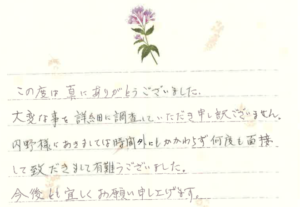 この度は真にありがとうございました。
大変な事を詳細に調査していただき申し訳ございません。
内野様におきましては時間外にもかかわらず何度も面接
して致だきまして有難うございました。
今後とも宜しくお願い申し上げます。